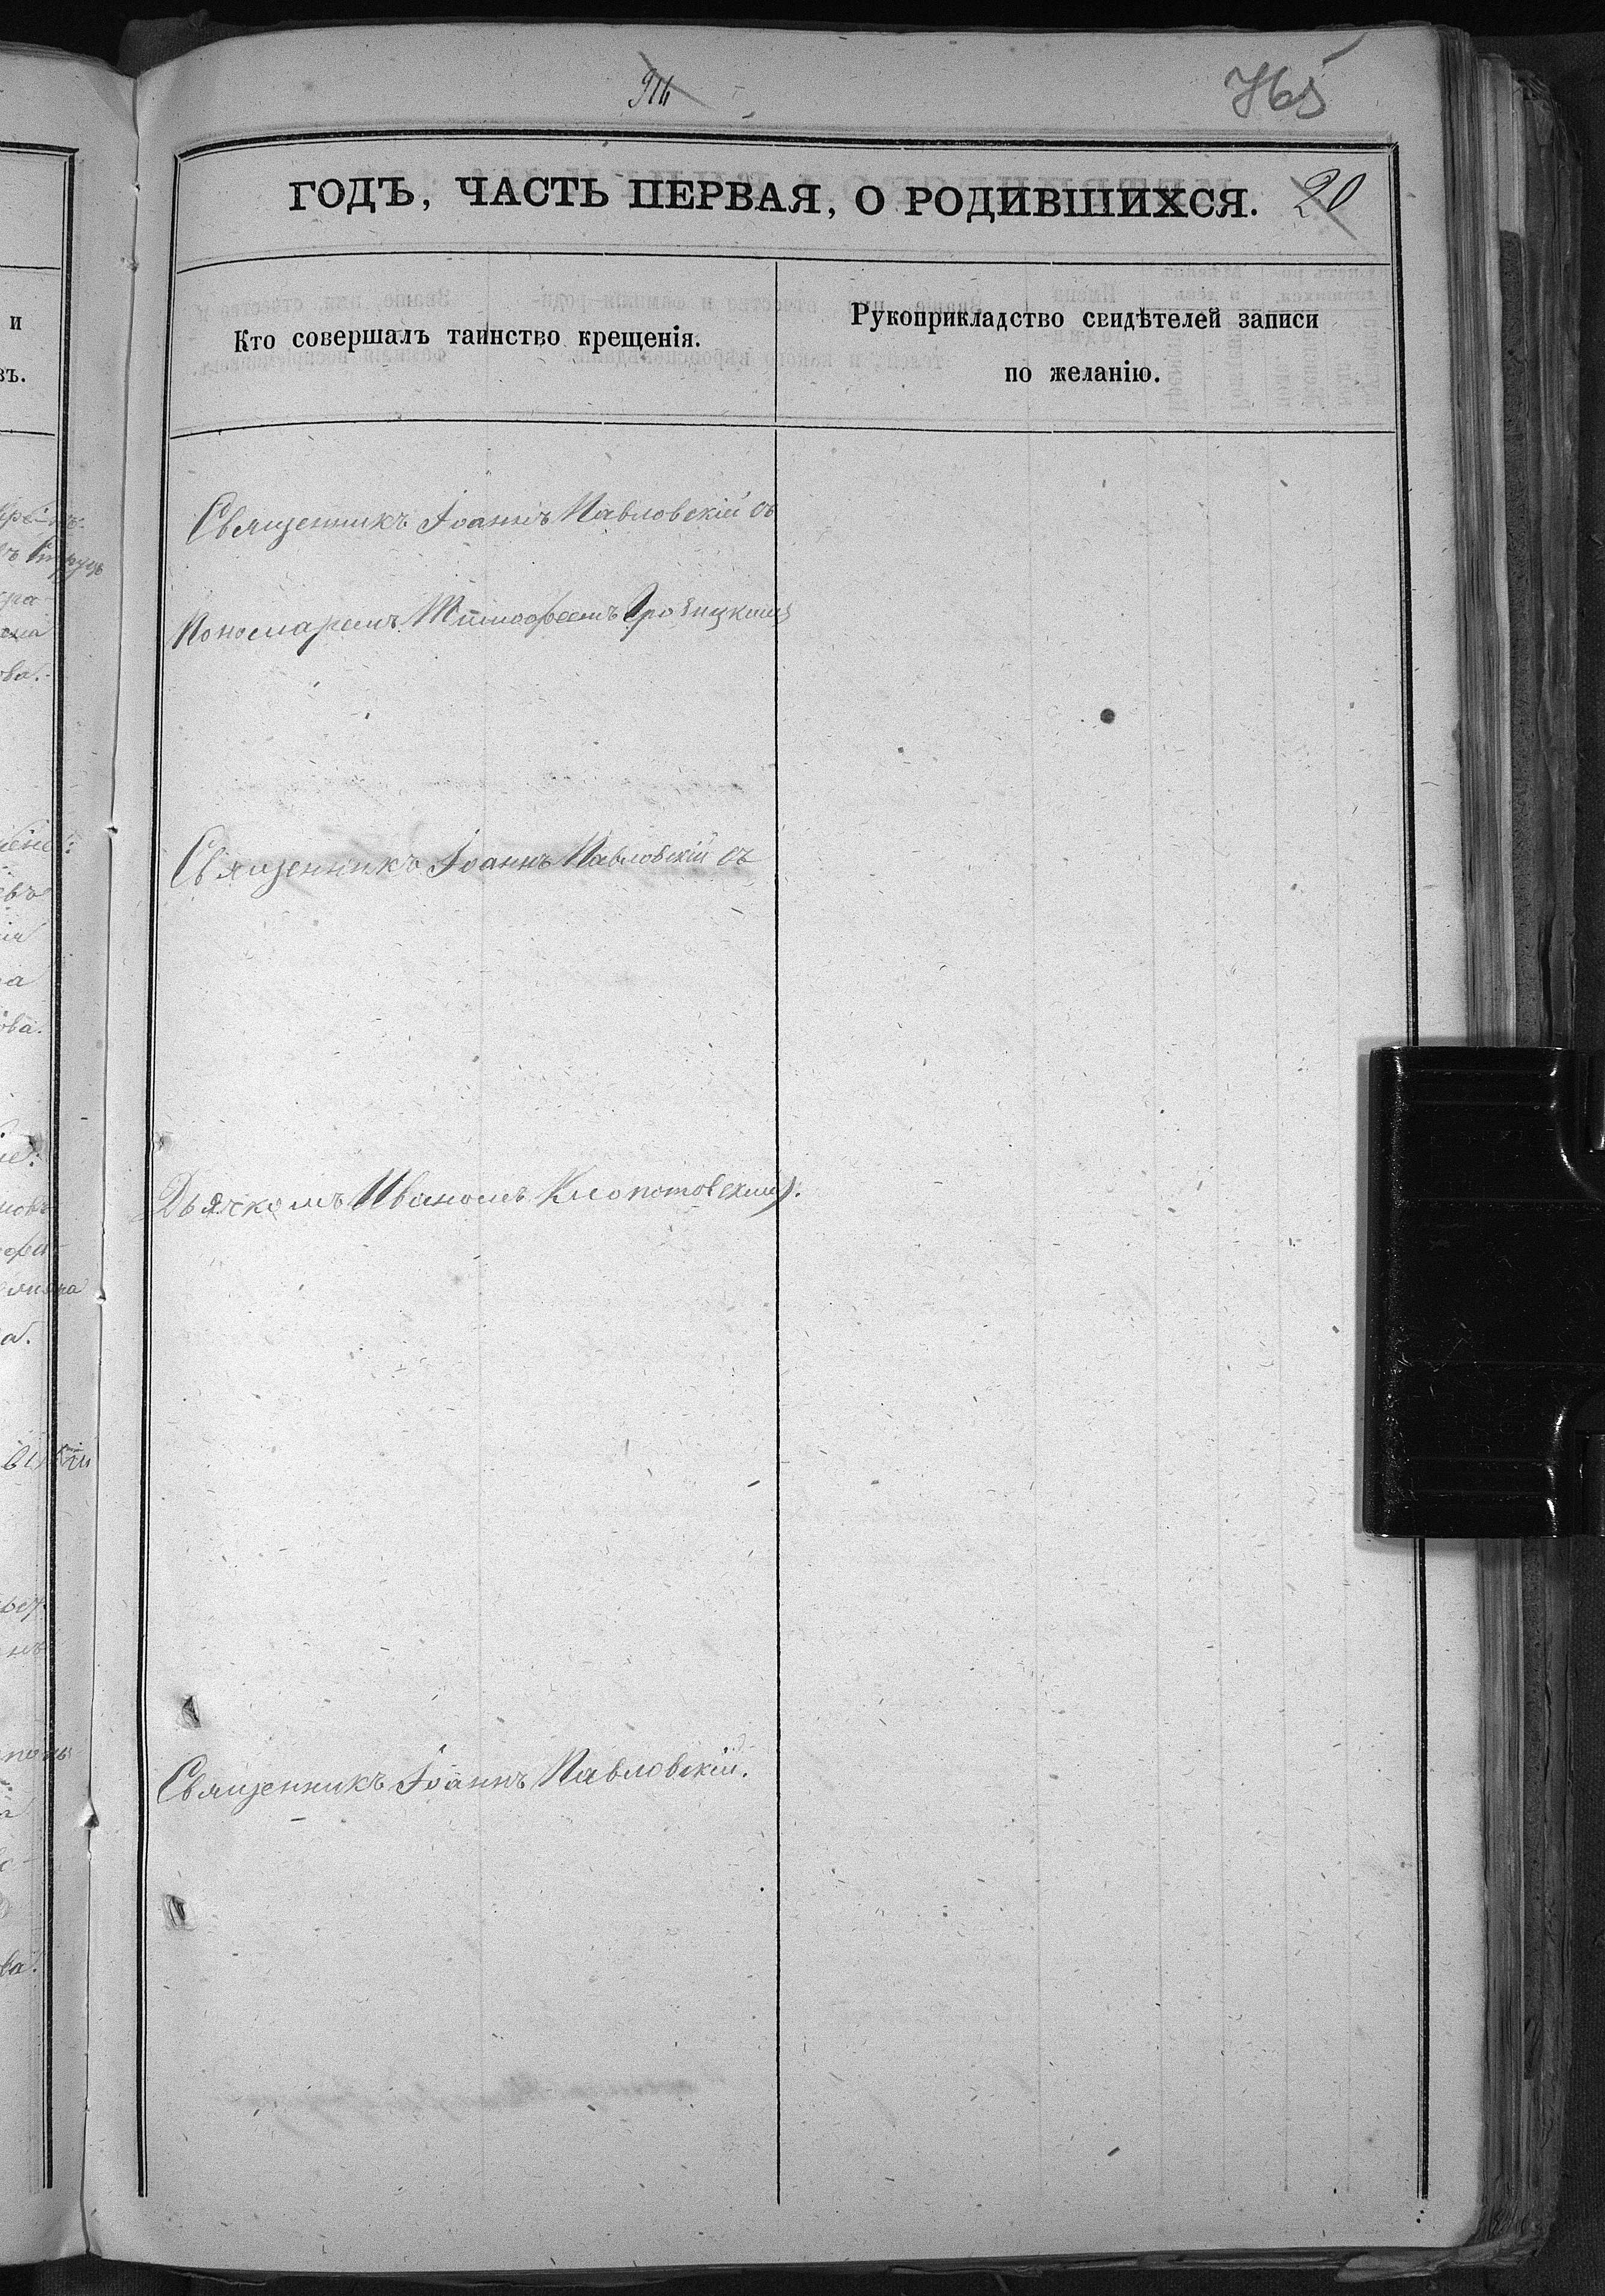 916
765
ГОДЪ, ЧАСТЬ ПЕРВАЯ, О РОДИВШИХСЯ. 20
Кто совершалъ таинство крещенія.
Рукоприкладство свидѣтелей записи
по желанію.
и
въ.
Священникъ Іоаннъ Павловскій съ
Пономаремъ Тимофеемъ
Священникъ Іоаннъ Павловскій съ
Дьячкомъ Иваномъ Клопотовскимъ.
Священникъ Іоаннъ Павловскій.